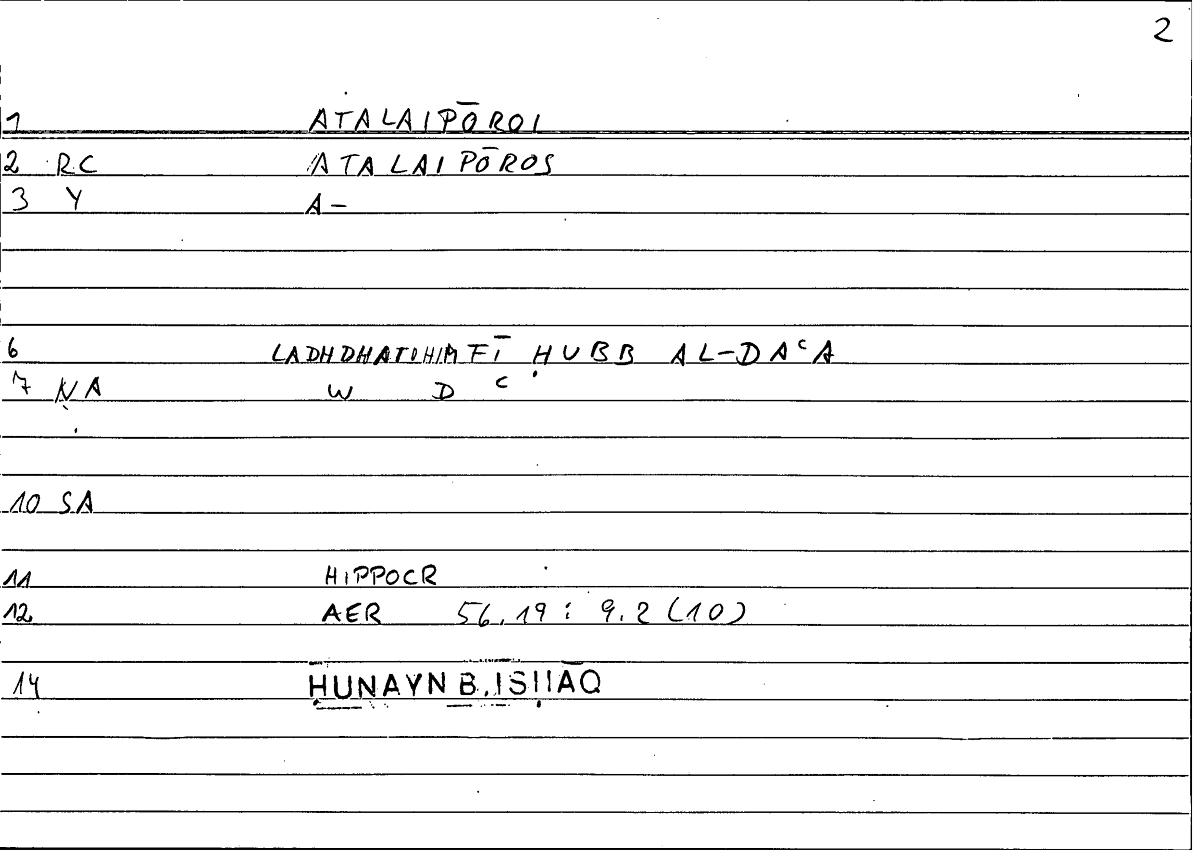 2
1 ATALAIPŌROI
2 RC ATALAIPŌROS
3 Y A-
6 LADHDHATUHIM FĪ ḤUBB AL-DAʿA
7 NA W D ʿ
10 SA
11 HIPPOCR
12 AER 56.19 : 9.2 (10)
14 ḤUNAYN B. ISḤĀQ